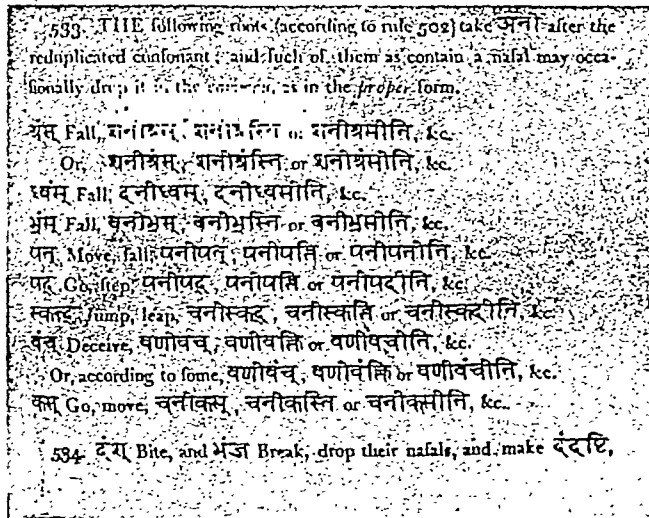 533. THE following roots (according to rule 502) take अनी after the
reduplicated consonant; and such of them as contain a nasal may occa-
sionally drop it in the common, as in the proper form.
Fall, शनीश्रस्, शनीश्रस्ति or शनीश्रसीति, &c.
Or, शनीश्रंस्, शनीश्रंस्ति or शनीश्रंसीति, &c.
ध्वंस् Fall, दनीध्वस्, दनीध्वसीति, &c.
भ्रंस् Fall, बनीभ्रस्, बनीभ्रस्ति or बनीभ्रसीति, &c.
पत् Move, fall, पनीपत्, पनीपत्ति or पनीपतीति, &c.
पद् Go, step, पनीपद्, पनीपत्ति or पनीपदीति, &c.
स्कन्द् Jump, leap, चनीस्कद्, चनीस्कत्ति or चनीस्कदीति, &c.
वंच् Deceive, वणीवच्, वणीवक्ति or वणीवचीति, &c.
Or, according to some, वणीवंच्, वणीवंक्ति or वणीवंचीति, &c.
कस् Go, move, चनीकस्, चनीकस्ति or चनीकसीति, &c.
534. दंश् Bite, and भञ्ज Break, drop their nasals, and make दंदष्टि,